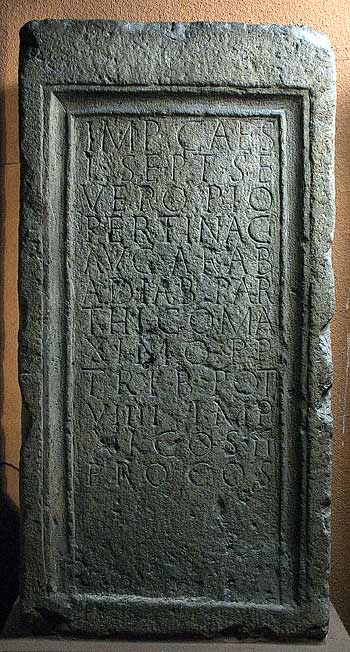 IMP CAES
L SEPT SE
VERO PIO
PERTINAC
AVG ARAB
ADIAB PAR
THICO MA
XIMO P P
TRIB POT
VIIII IMP
XI COS II
PRO COS